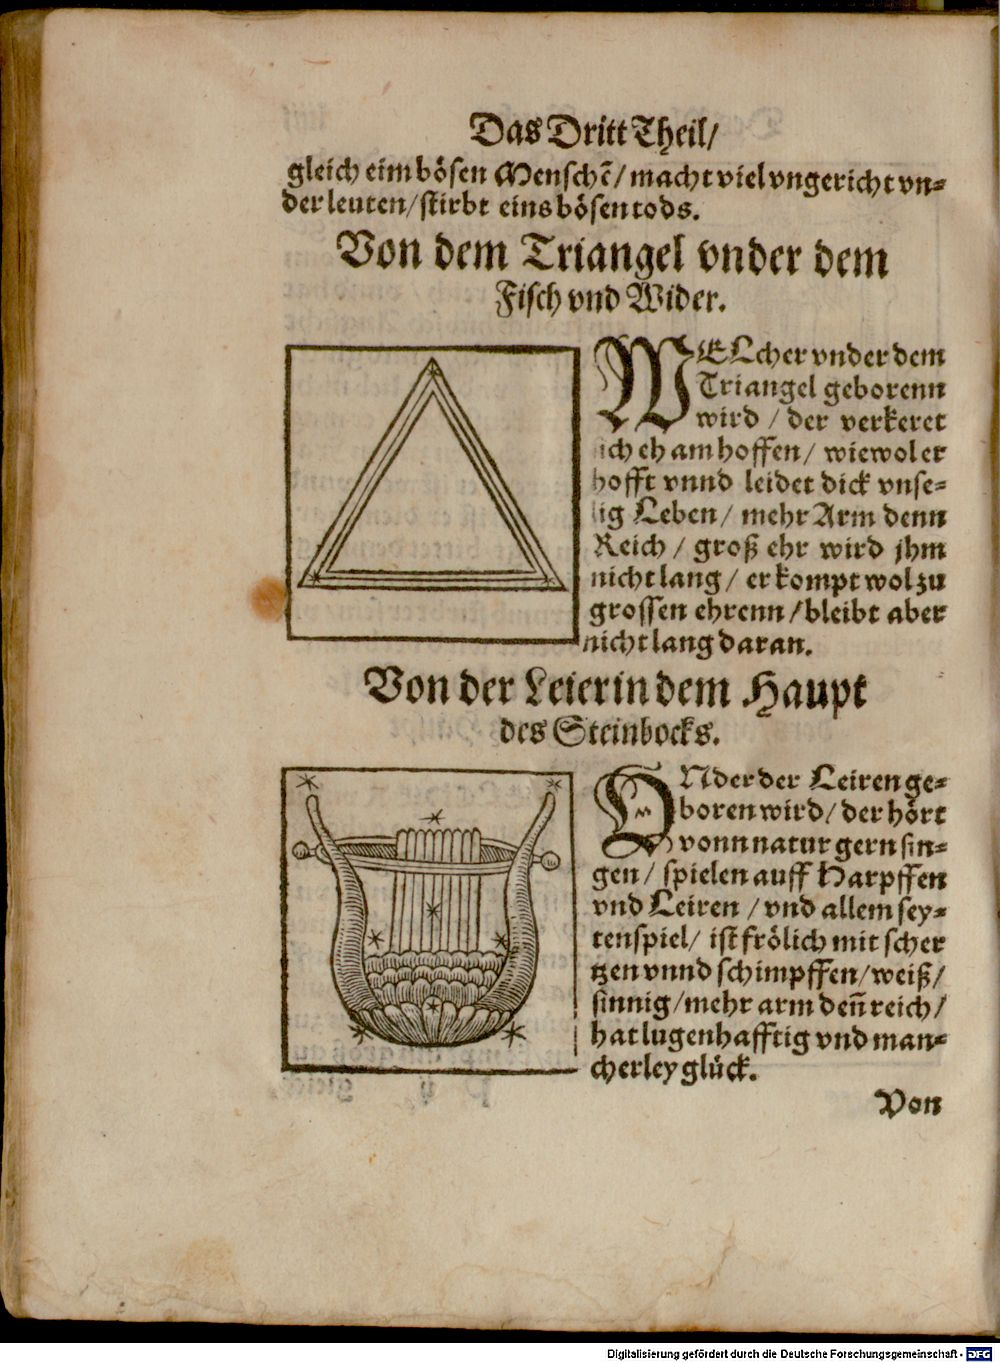 Das Dritt Theil/
gleich eim bösen Mensche͂/ macht viel vngericht vn⸗
der leuten/ stirbt eins bösen tods.
Von dem Triangel vnder dem
Fisch vnd Wider.
WELcher vnder dem
Triangel geborenn
wird / der verkeret
sich eh am hoffen/ wiewol er
hofft vnnd leidet dick vnse⸗
lig Leben/ mehr Arm denn
Reich / groß ehr wird jhm
nicht lang / er kompt wol zu
grossen ehrenn / bleibt aber
nicht lang daran.
Von der Leier in dem Haupt
des Steinbocks.
VNder der Leiren ge⸗
boren wird/ der hört
vonn natur gern sin⸗
gen / spielen auff Harpffen
vnd Leiren / vnd allem sey⸗
tenspiel/ ist frölich mit scher
tzen vnnd schimpffen/ weiß/
sinnig / mehr arm den̄ reich/
hat lugenhafftig vnd man⸗
cherley glück.
Von
Digitalisierung gefördert durch die Deutsche Forschungsgemeinschaft - DFG